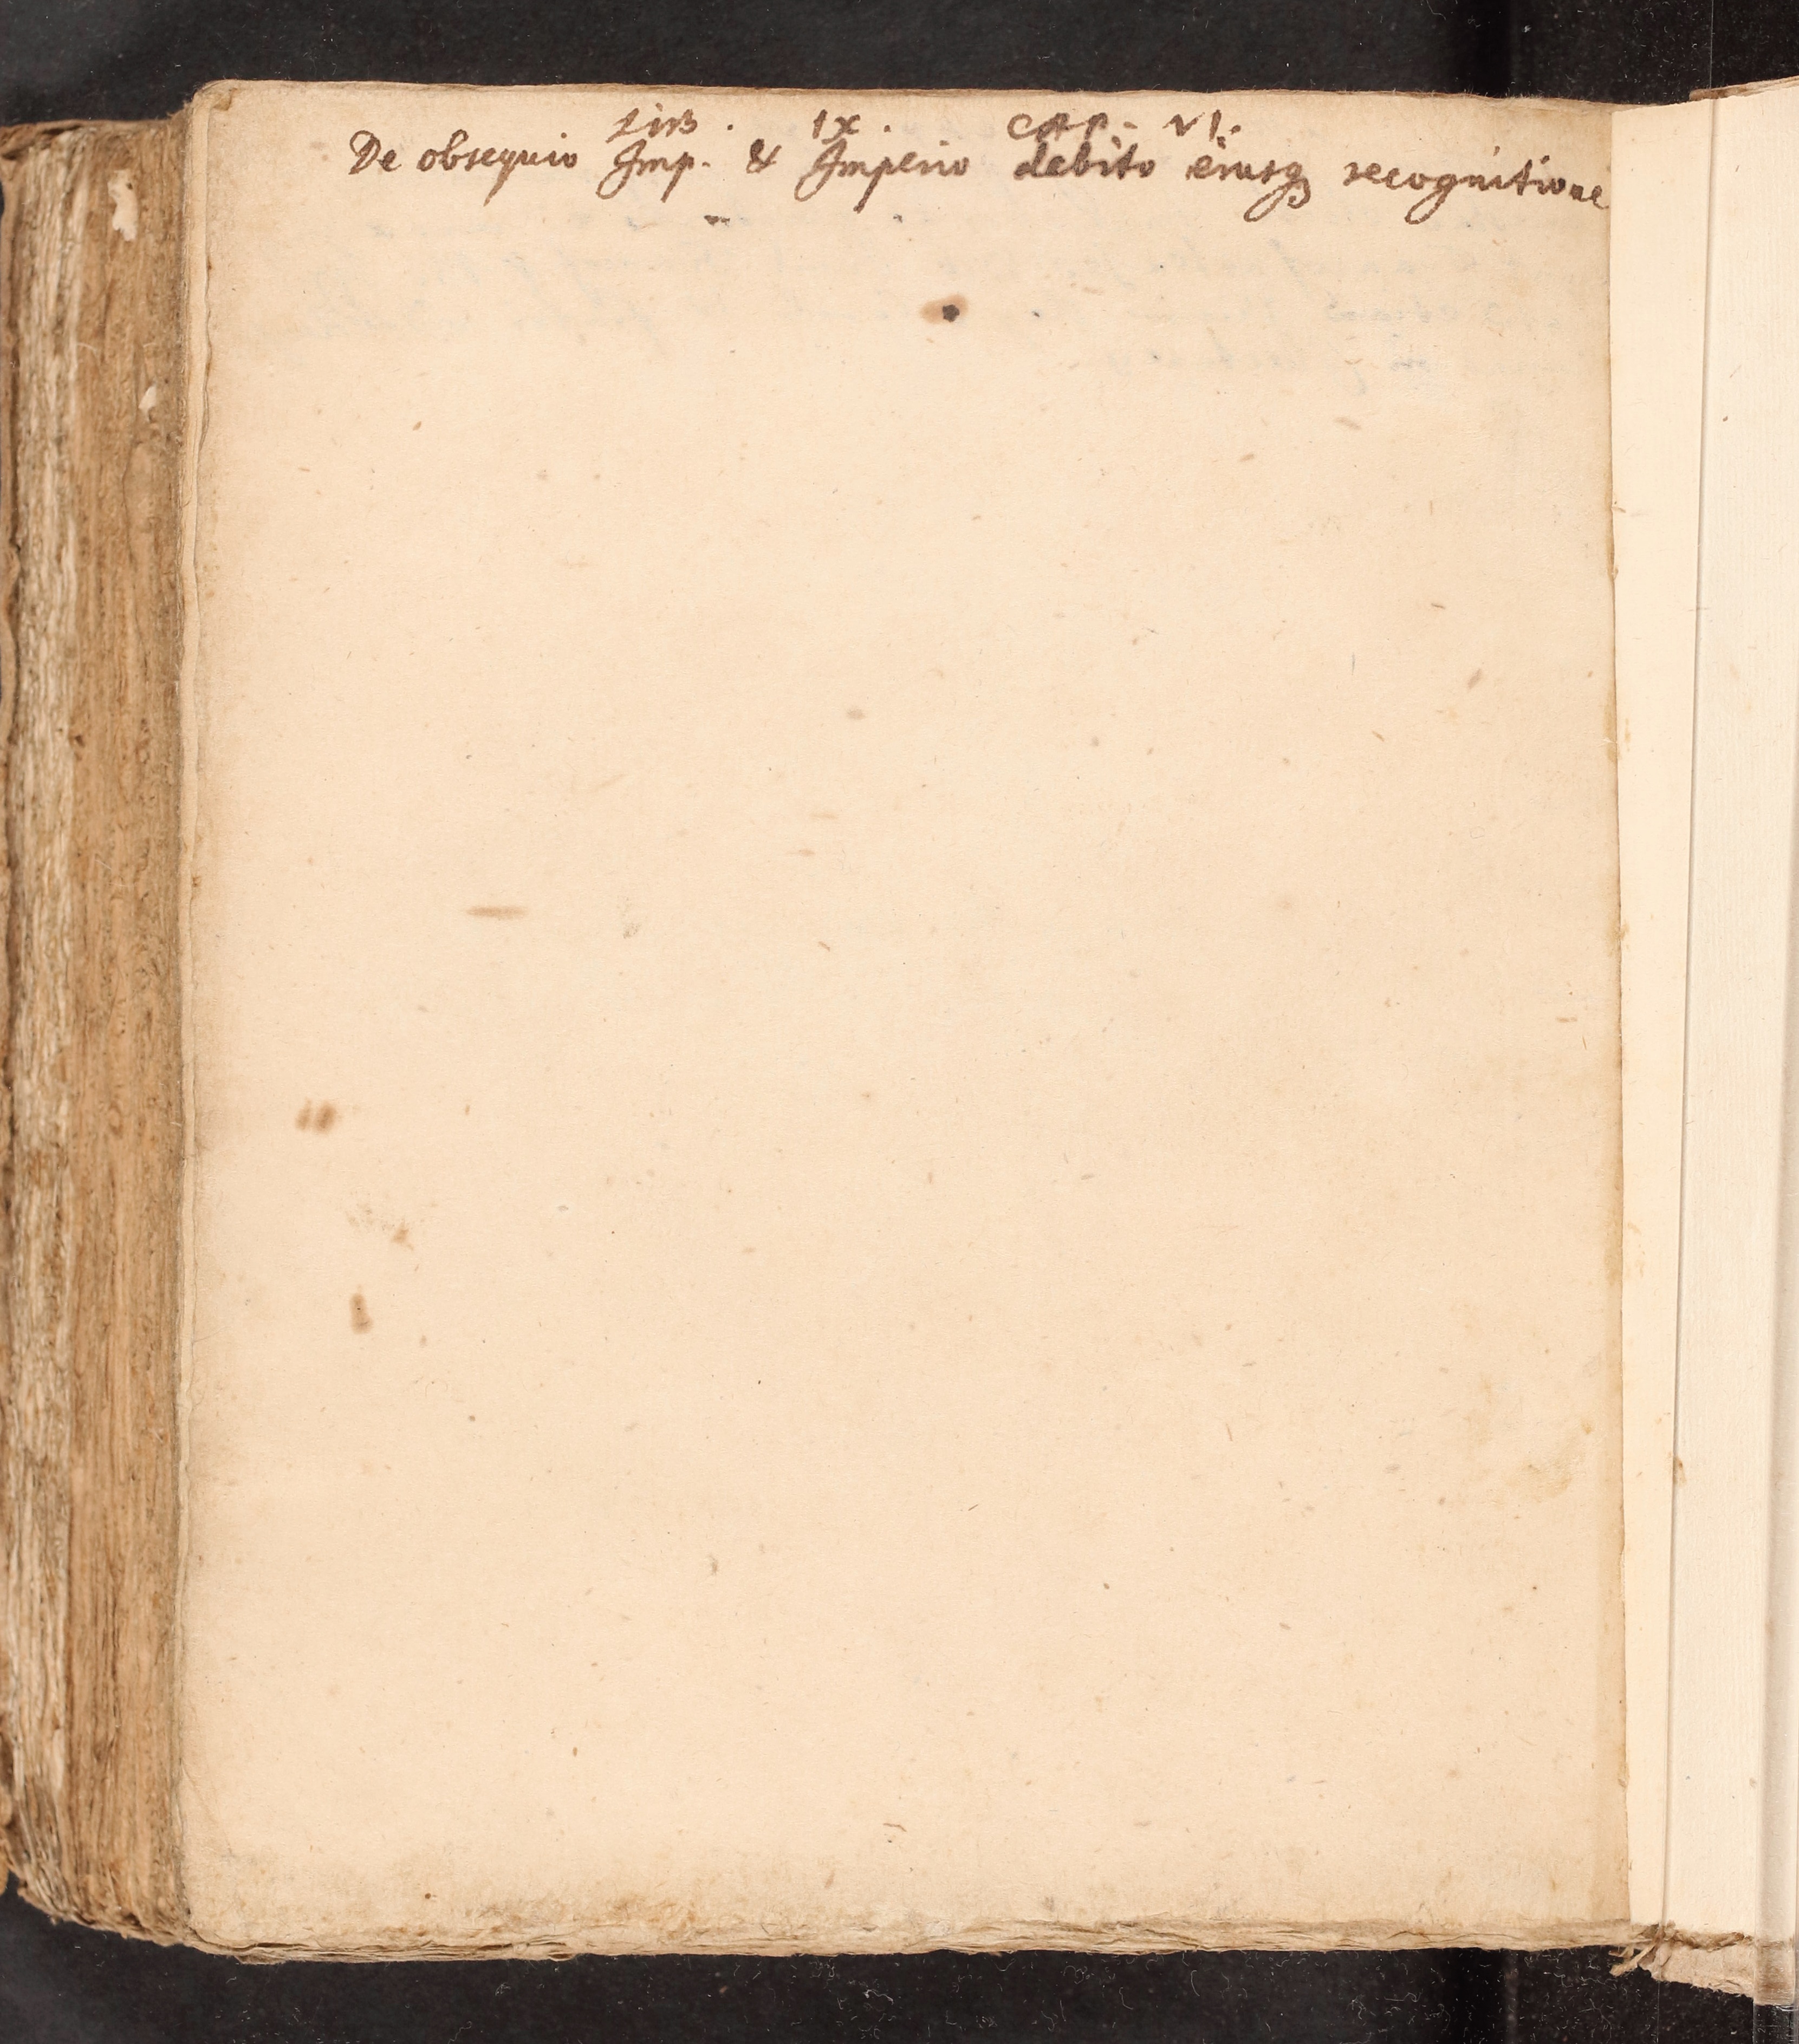 LIB. IX. CAP. VI.
De obsequio Imp. & Imperio debito eiusq; recognitione